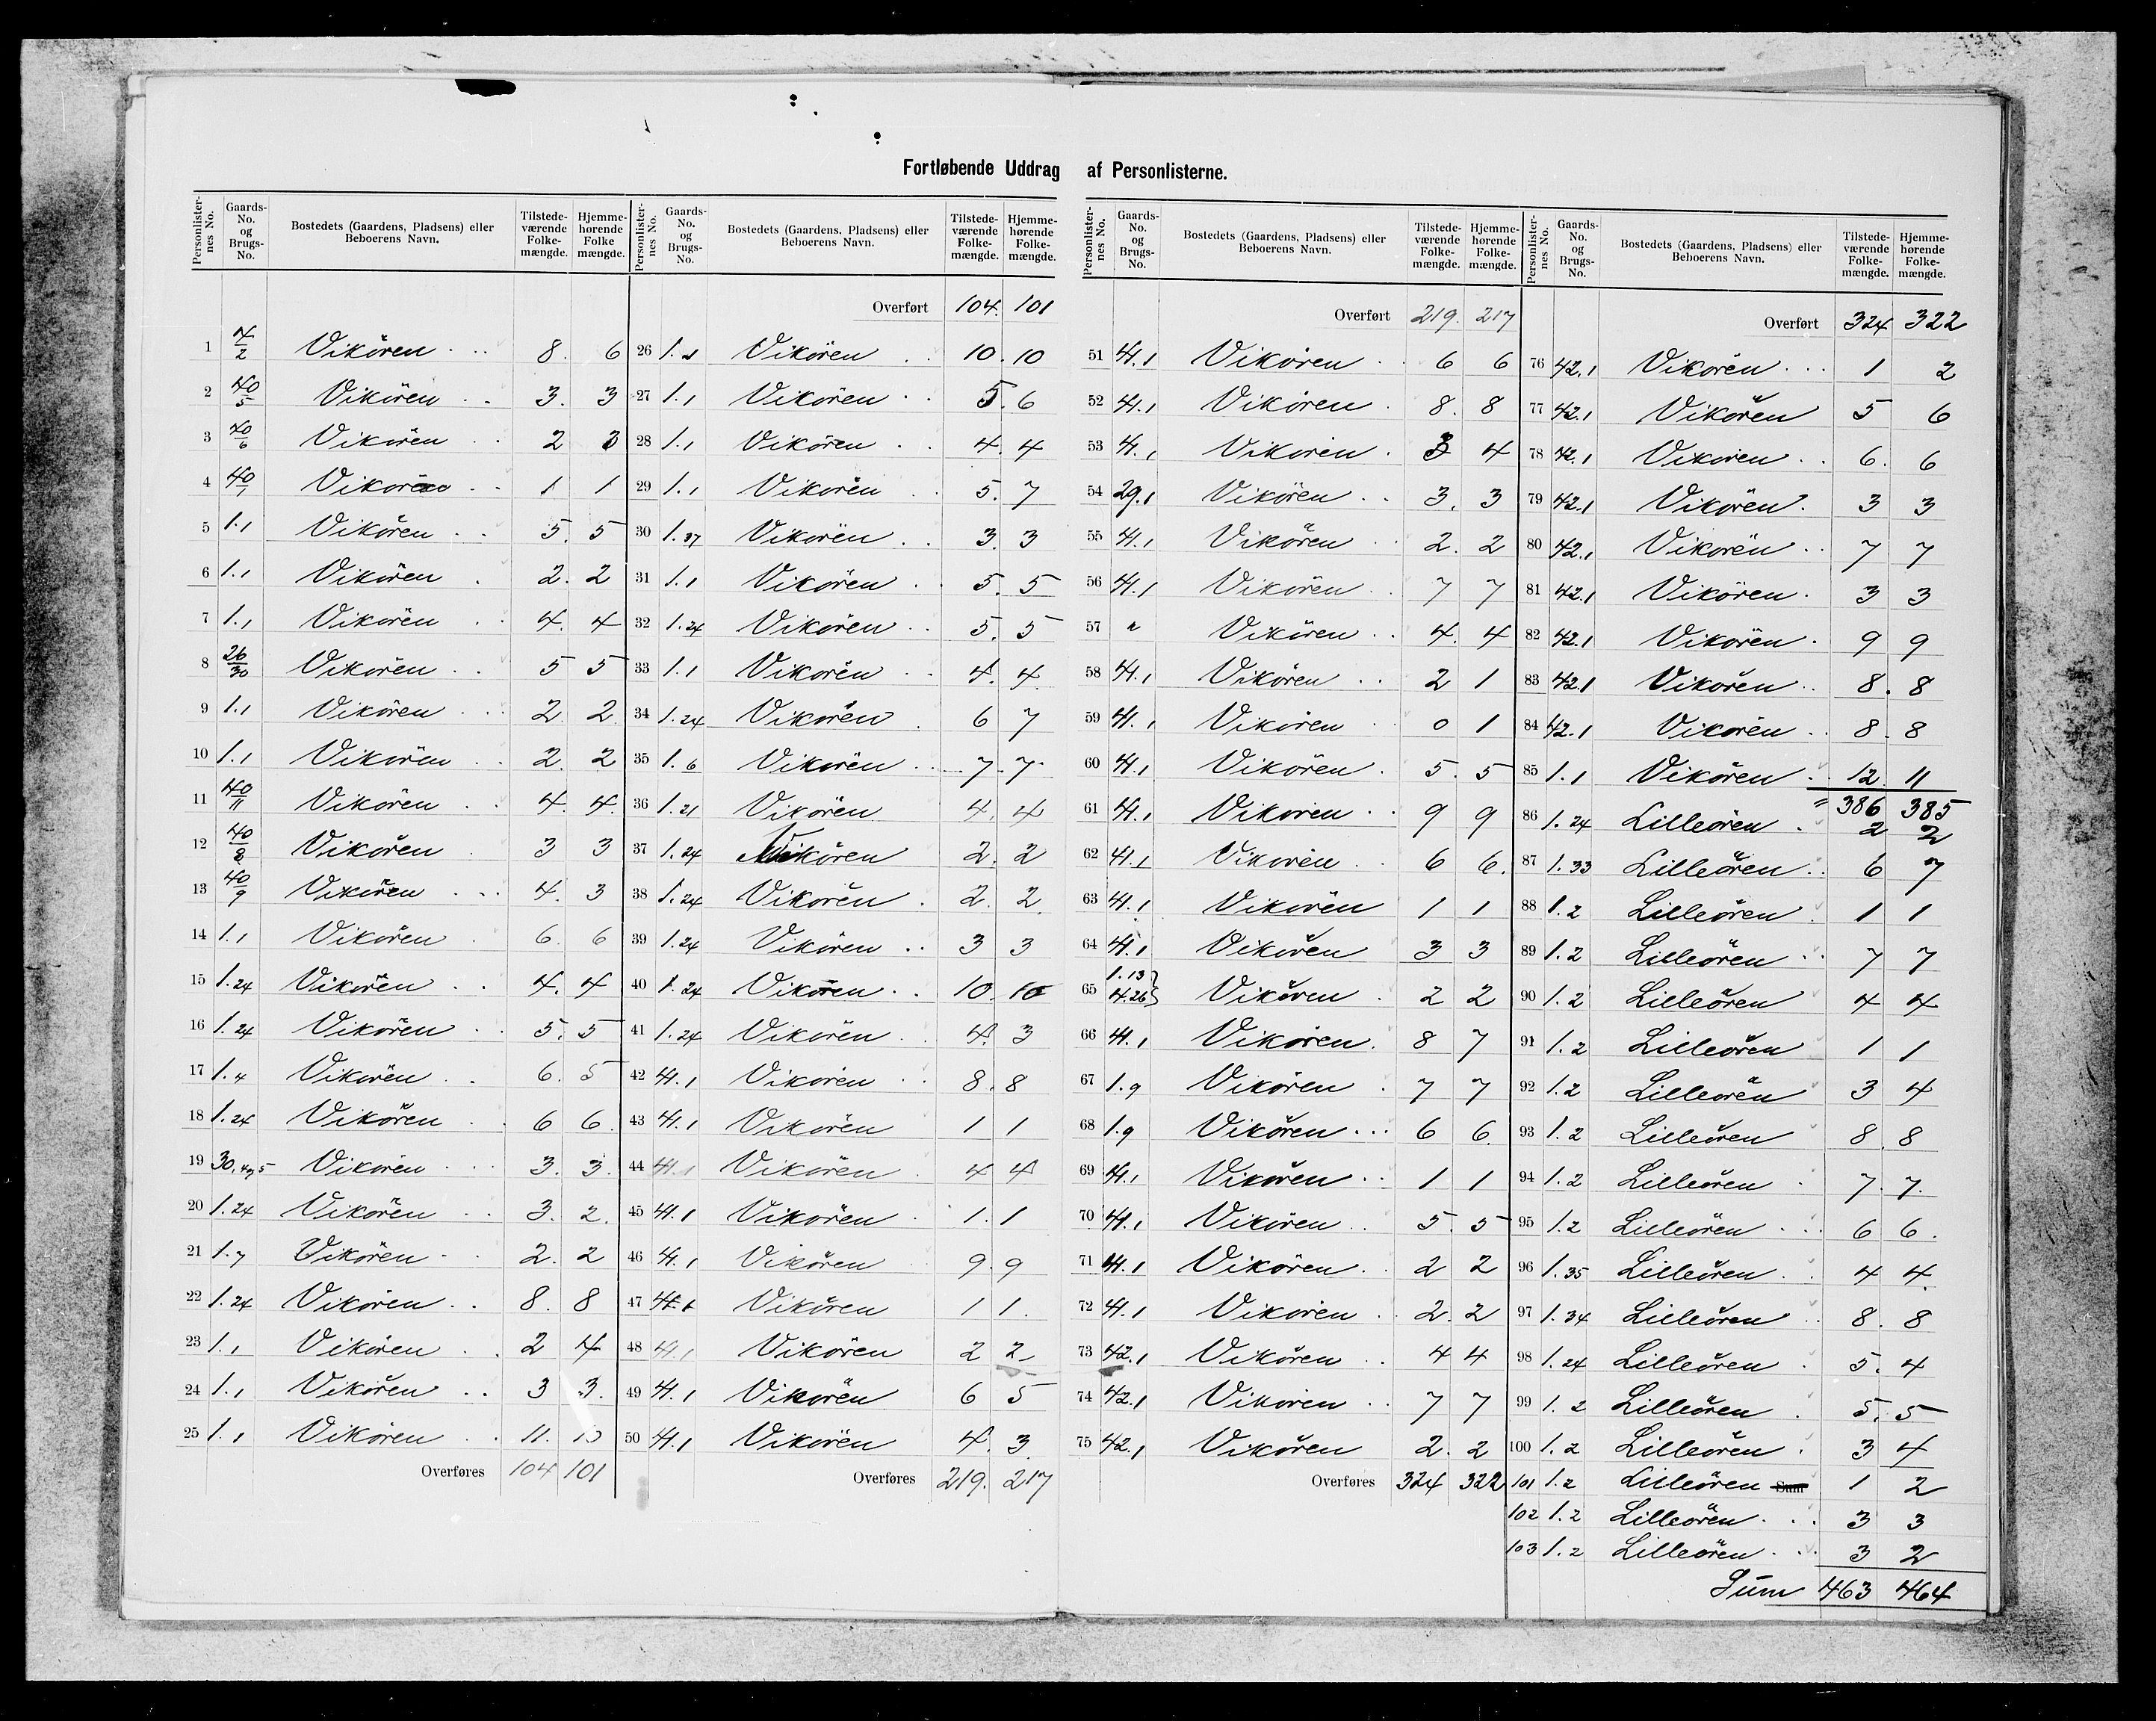 Fortløbende Uddrag af Personlisterne.
Personlister-nes No. Gaards-No. og Brugs-No. Bostedets (Gaardens, Pladsens) eller Beboerens Navn. Tilstede-værende Folke-mængde. Hjemme-hørende Folke mængde.
1 4/2 Vikören 8. 6
2 40/5 Vikören 3. 3
3 40/6 Vikören 2 3
4 40/1 Vikören 1 1
5 1.1 Vikören 5. 5
6 1.1 Vikören 2. 2
7 1.1 Vikören 4. 4
8 26/30 Vikören 5 5
9 1.1 Vikören 2. 2
10 1.1 Vikören 2. 2
11 40/11 Vikören 4. 4.
12 40/8 Vikören 3 3
13 40/9 Vikören 4. 3
14 1.1 Vikören 6. 6
15 1.24 Vikören 4. 4
16 1.24 Vikören 5. 5
17 1.4 Vikören 6. 5
18 1.24 Vikören 6 6.
19 30. Vikören 3. 3.
20 1.24 Vikören 3. 2.
21 1.7 Vikören 2. 2
22 1.24 Vikören 8. 8
23 1.1 Vikören 2 4
24 1.1 Vikören 3 3.
25 1.1 Vikören 11. 10
Overføres 104 101
Personlister-nes No. Gaards-No. og Brugs-No. Bostedets (Gaardens, Pladsens) eller Beboerens Navn. Tilstede-værende Folke-mængde. Hjemme-hørende Folke-mængde.
Overført 104. 101
26 1. Vikören 10. 10
27 1.1 Vikören 5. 6
28 1.1 Vikören 4. 4
29 1.1 Vikören 5. 7
30 1.37 Vikören 3. 3
31 1.1 Vikören 5. 5
32 1.24 Vikören 5. 5
33 1.1 Vikören 4. 4.
34 1.24 Vikören 6 7
35 1.6 Vikören 7. 7
36 1.21 Vikören 4. 4
37 1.24 Vikören 2. 2
38 1.24 Vikören 2. 2.
39 1.24 Vikören 3 3
40 1.24 Vikören 10. 10
41 1.24 Vikören 4. 3
42 41.1 Vikören 8. 8
43 41.1 Vikören 1 1
44 41.1 Vikören 4 4
45 41.1 Vikören 1. 1
46 41.1 Vikören 9. 9
47 41.1 Vikören 1 1.
48 41.1 Vikören 2 2
49 41.1 Vikören 6 5
50 41.1 Vikören 4. 3
Overføres 219. 217
Personlister-nes No. Gaards-No. og Brugs-No. Bostedets (Gaardens, Pladsens) eller Beboerens Navn. Tilstede-værende Folke-mængde. Hjemme-hørende Folke-mængde.
Overført 219. 217
51 41.1 Vikören 6 6
52 41.1 Vikören 8. 8
53 41.1 Vikören 3 4
54 29.1 Vikören 3. 3
55 41.1 Vikören 2. 2
56 41.1 Vikören 7 7
57 " Vikören 4. 4
58 41.1 Vikören 2 1
59 41.1 Vikören 0 1
60 41.1 Vikören 5. 5
61 41.1 Vikören 9 9
62 41.1 Vikören 6 6.
63 41.1 Vikören 1 1
64 41.1 Vikören 3 3
65 1.13 4.26 } Vikören 2 2
66 41.1 Vikören 8 7
67 1.9 Vikören 7 7
68 1.9 Vikören 6 6.
69 41.1 Vikören 1 1
70 41.1 Vikören 5. 5
71 41.1 Vikören 2 2
72 41.1 Vikören 2. 2
73 42.1 Vikören 4 4
74 42.1 Vikören 7 7
75 42.1 Vikören 2. 2
Overføres 324 322
Personlister-nes No. Gaards-No. og Brugs-No. Bostedets (Gaardens, Pladsens) eller Beboerens Navn. Tilstede-værende Folke-mængde. Hjemme-hørende Folke-mængde.
Overført 324 322
76 42.1 Vikören 1 2
77 42.1 Vikören 5 6
78 42.1 Vikören 6. 6
79 42.1 Vikören 3 3
80 42.1 Vikören 7 7
81 42.1 Vikören 3 3
82 42.1 Vikören 9 9
83 42.1 Vikören 8. 8
84 42.1 Vikören 8. 8
85 1.1 Vikören 12. 11
= 386 385
86 1.24 Lilleören 2 2
87 1.33 Lilleören 6 7
88 1.2 Lilleören 1 1
89 1.2 Lilleören 7 7
90 1.2 Lilleören 4 4
91 1.2 Lilleören 1 1
92 1.2 Lilleören 3 4
93 1.2 Lilleören 8. 8
94 1.2 Lilleören 7. 7.
95 1.2 Lilleören 6 6.
96 1.35 Lilleören 4 4.
97 1.34 Lilleören 8. 8
98 1.24 Lilleören 5. 4
99 1.2 Lilleören 5. 5
100 1.2 Lilleören 3 4
101 1.2 Lilleören Sum 1 2
102 1.2 Lilleören 3 3
103 1.2 Lilleören 3 2
Sum 463 464